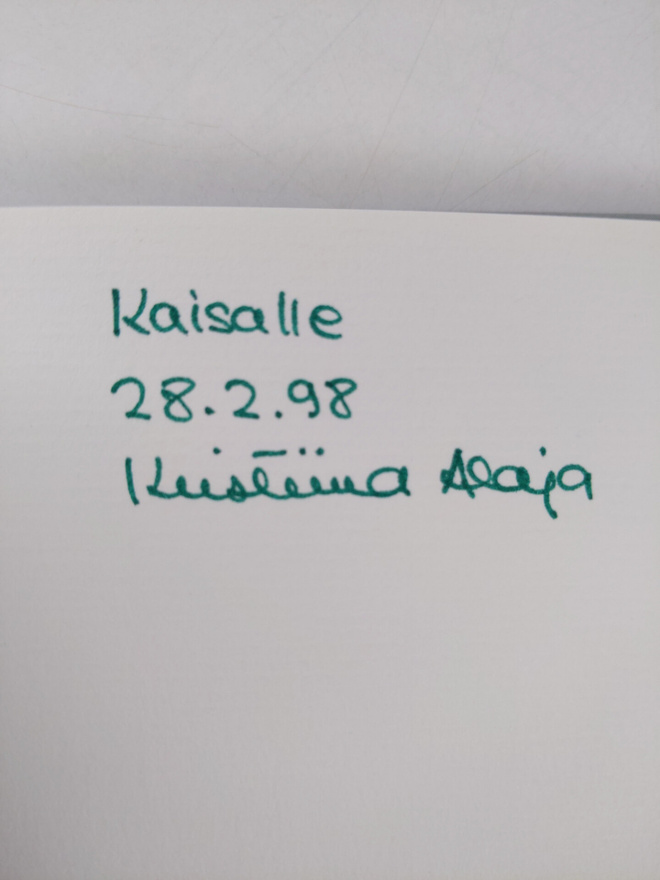 Kaisalle
28.2.98
Kristiina Alaja